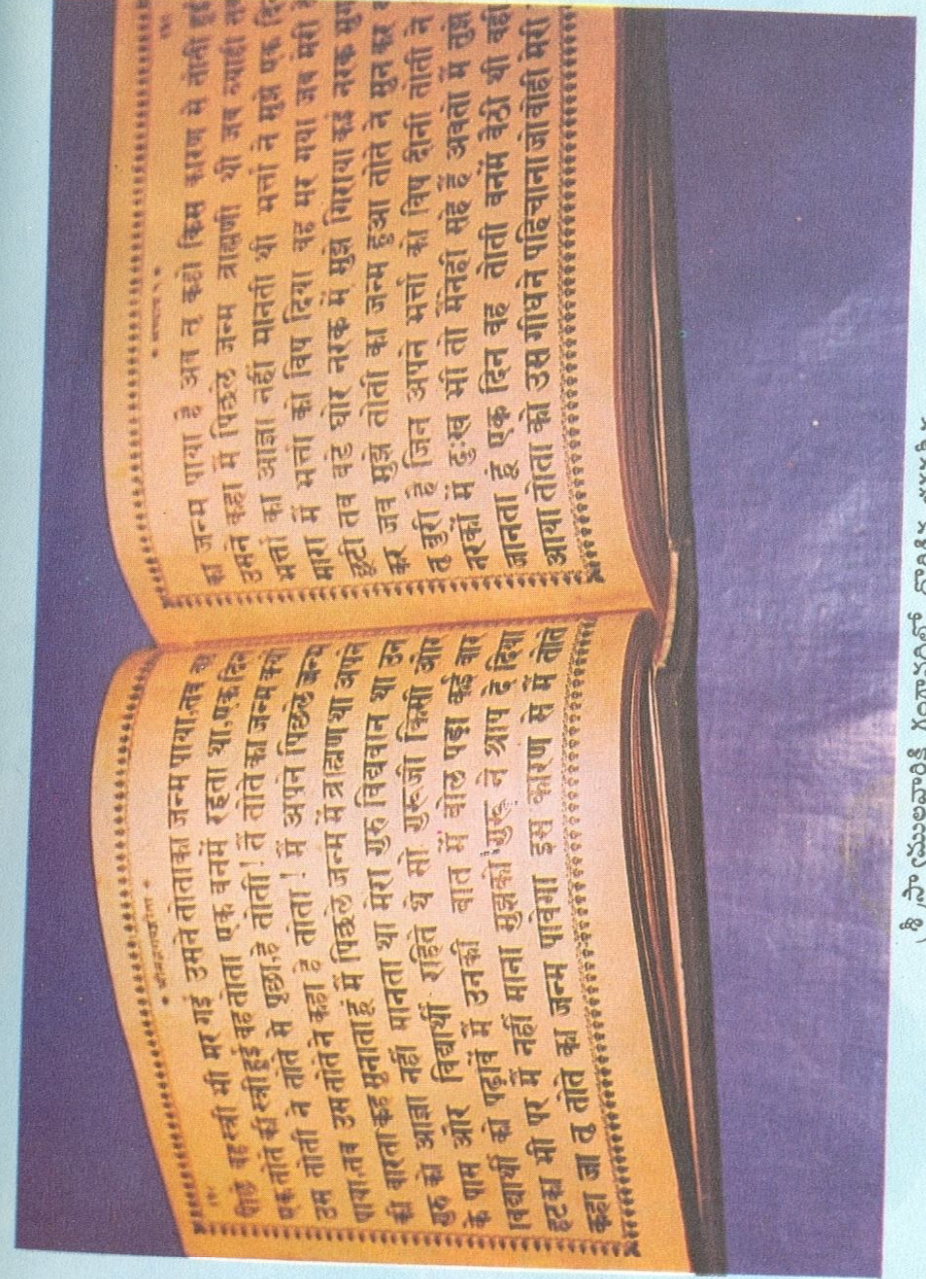 १५८
• श्रीमद्भगवद्गीता •
पीछे वह स्त्री भी मर गई उसने तोताका जन्म पाया, तब वह
एक तोते की स्त्री हुई वह तोता एक वनमें रहता था, एक दिन
उस तोती ने तोते से पूछा, हे तोती ! तें तोते का जन्म क्यों
पाया, तब उस तोते ने कहा हे तोता ! में अपने पिछले जन्म
की वारता कह सुनाता हूं में पिछले जन्म में ब्राह्मण था अपने
गुरु की आज्ञा नहीं मानता था मेरा गुरु विद्यवान था उन
के पास और विद्यार्थी रहिते थे सो गुरूजी किसी और
विद्यार्थी को पढ़ावें में उनकी बात में बोल पड़ा कई वार
हटका भी पर में नहीं माना मुझको गुरू ने श्राप दे दिया
कहा जा तू तोते का जन्मा पावेगा इस कारण से में तोते
• अध्याय ५ •
का जन्म पाया है अब तू कहो किस कारण से तोती हुई
उसने कहा में पिछले जन्म ब्राह्मणी थी जब व्याही
भर्त्ता का आज्ञा नहीं मानती थी भर्त्ता ने मुझे एक दिन
मारा में भर्त्ता को विष दिया वह मर गया जब मेरी
छूटी तब बडे घोर नरक में मुझे गिराया कई नरक
कर जब मुझे तोती का जन्म हुआ तोते ने सुन कर
तू बुरी है जिन अपने भर्त्ता को विष दीना तोती ने
नरकों में दुःख भी तो मैंनेही सहे हैं अबतो में तुझे
जानता हूं एक दिन वह तोती वनमें बेठी थी वही
आया तोता को उस गीधने पहिचाना जो वोही मेरी
శ్రీ స్వాములవారికి గంగానదిలో దొరికిన భగవద్గీత